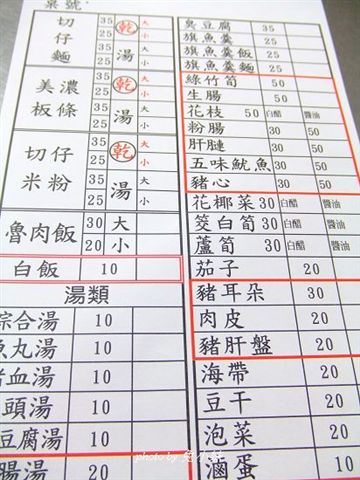 桌號
切仔麵 35 乾 大
25 小
35 湯 大
25 小
美濃板條 35 乾 大
25 小
35 湯 大
25 小
切仔米粉 35 乾 大
25 小
35 湯 大
25 小
魯肉飯 30 大
20 小
白飯 10
湯類
綜合湯 10
魚丸湯 10
豬血湯 10
頭湯 10
豆腐湯 10
腸湯 20
臭豆腐 35
旗魚羹 35
旗魚羹飯 35
旗魚羹麵 35
綠竹筍 50
生腸 50
花枝 50 白醋 醬油
粉腸 30 50
肝腱 30 50
五味魷魚 50
豬心 30 50
花椰菜 30 白醋 醬油
筊白筍 30 白醋 醬油
蘆筍 30 白醋 醬油
茄子 20
豬耳朵 30
肉皮 20
豬肝盤 20
海帶 20
豆干 20
泡菜 20
滷蛋 10
photo by